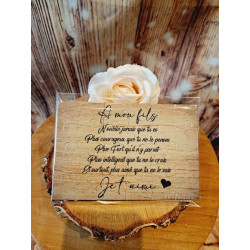 À mon fils
N'oublie jamais que tu es
Plus courageux que tu ne le penses
Plus fort qu'il n'y paraît
Plus intelligent que tu ne le crois
Et surtout, plus aimé que tu ne le sais
Je t'aime